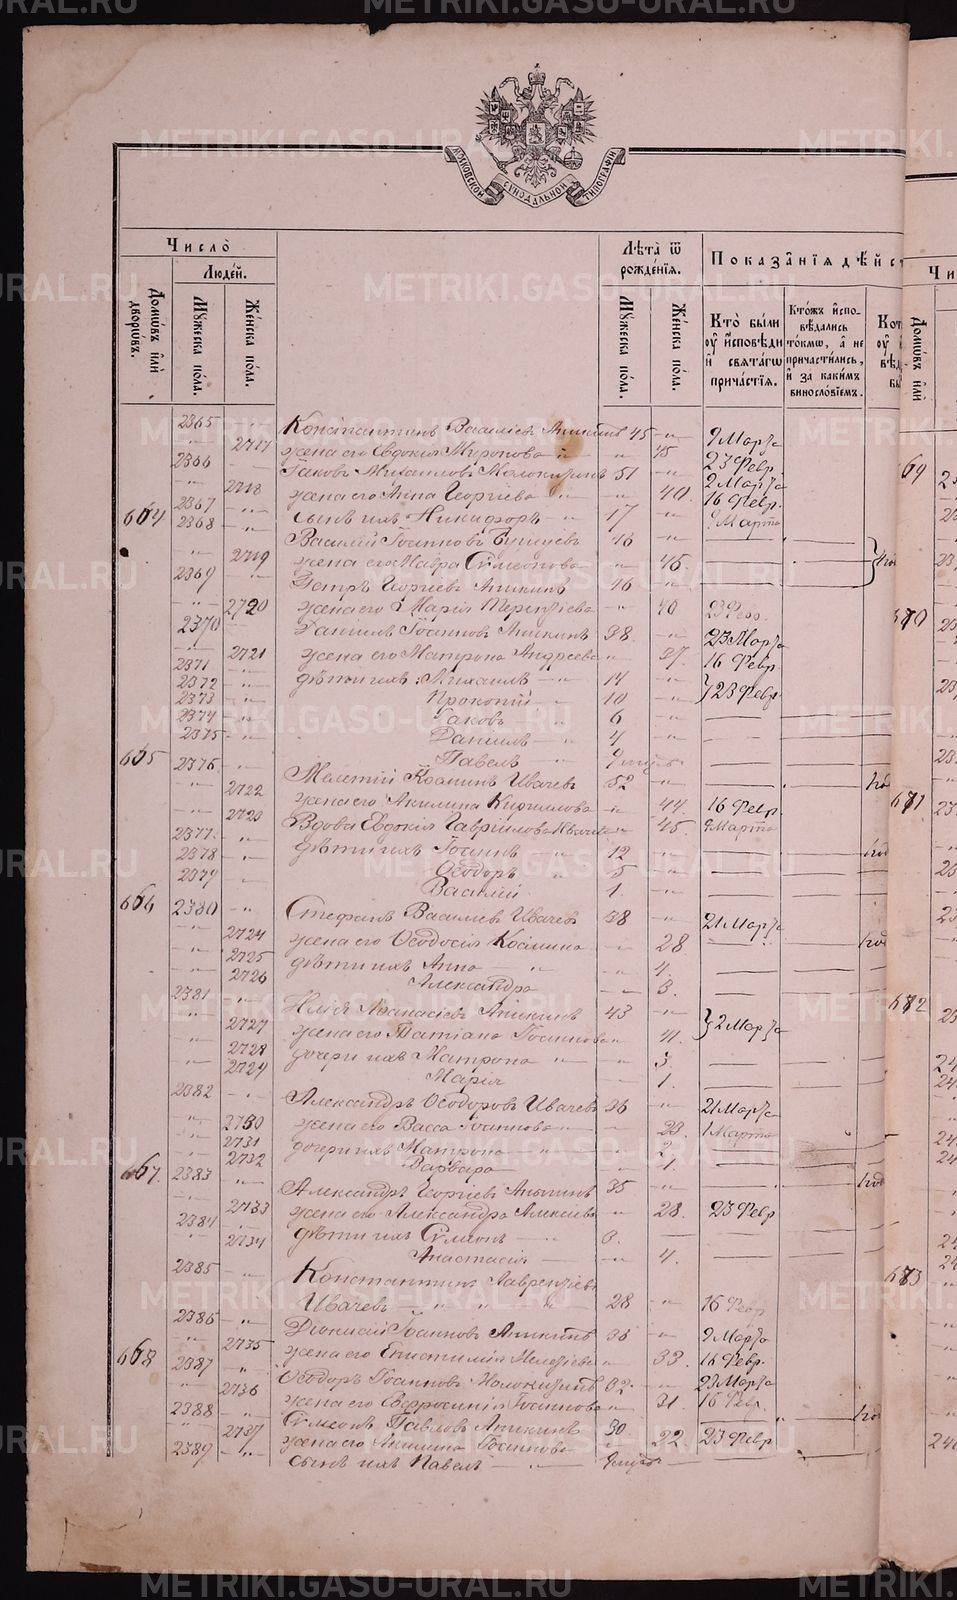 METRIKI.GASO-URAL.RU
МОСКОВСКОЙ СѴНОДАЛЬНОЙ ТИПОГРАФІИ
Число̀
Людéй.
Домѡ́въ и҆лѝ дворѡ́въ.
Мꙋ́жеска по́ла.
Же́нска по́ла.
Лѣ̑та ѿ рожде́нїѧ.
Мꙋ́жеска по́ла.
Же́нска по́ла.
Показа̑нїѧ дѣ́йст
Кто̀ бы́ли
оу҆ и҆́сповѣди
и҆ свѧта́гѡ
прича́стїѧ.
Кто́жъ и҆спо-
вѣ́дались
то́кмѡ, а҆ не
причасти́лись,
и҆ за каки́мъ
винослові́емъ.
2365 -"- Константинъ Василіевъ Аникинъ 45 -"- 9 Марта
-"- 2717 жена его Евдокія Миронова -"- 45 23 Февр.
2366 -"- Іаковъ Михаиловъ Молокитинъ 51 -"- 2 Марта
-"- 2718 жена его Анна Георгіева -"- 40. 16 Февр.
2367 -"- сынъ ихъ Никифоръ 17 -"- 9 Марта
664 2368 -"- Василій Іоанновъ 46 -"-
-"- 2719 жена его Мавра Сѵмеонова -"- 45.
2369 -"- Петръ Георгіевъ Аникинъ 46 -"-
-"- 2720 жена его Марія Терентіева -"- 40 23 Февр.
2370 -"- Даніилъ Іоанновъ Аникинъ 38. -"- 23 Марта
-"- 2721 жена его Матрона Андреева -"- 37. 16 Февр.
2371 -"- дѣти ихъ: Михаилъ 14 -"- 23 Февр.
2372 -"- Прокопій 10 -"-
2373 -"- Іаковъ 6 -"-
2374 -"- Даніилъ 4 -"-
2375 -"- Павелъ
665 2376 -"- Мелетій Козминъ Ивачевъ 52 -"-
-"- 2722 жена его Акилина Кирилова -"- 44. 16 Февр.
2723 Вдова Евдокія Гавріилова Ивачева -"- 45. 9 Марта
2377. -"- дѣти ихъ Іоаннъ 12 -"-
2378 -"- Ѳеодоръ 5 -"-
2379 -"- Василій 1 -"-
666 2380 -"- Стефанъ Василіевъ Ивачевъ 38 -"- 21 Марта
-"- 2724 жена его Ѳеодосія Косьмина -"- 28
-"- 2725 дѣти ихъ Анна -"- 4.
-"- 2726 Александра -"- 3.
2381 -"- Илія Аѳанасіевъ Аникинъ 43 -"- 2 Марта
-"- 2727 жена его Татіана Іоаннова -"- 41.
-"- 2728 дочери ихъ Матрона -"- 3.
-"- 2729 Марія -"- 1.
2382 -"- Александръ Ѳеодоровъ Ивачевъ 36 -"- 21 Марта
-"- 2730 жена его Васса Іоаннова -"- 23. 1 Марта
-"- 2731 дочери ихъ Матрона -"- 2.
-"- 2732 Варвара -"- 1.
667. 2383 -"- Александръ Георгіевъ Аникинъ 35 -"-
-"- 2733 жена его Александра Алексіева -"- 28. 23 Февр
2384 -"- дѣти ихъ Сѵмеонъ 8. -"-
-"- 2734 Анастасія -"- 4.
2385 -"- Константинъ Лаврентіевъ
Ивачевъ 28 -"- 16 Февр
2386 -"- Діонисій Іоанновъ Аникинъ 36 -"- 9 Марта
-"- 2735 жена его Епистимія Мелетіева -"- 33. 16 Февр.
668 2387 -"- Ѳеодоръ Іоанновъ Молокитинъ 32. -"- 23 Марта
-"- 2736 жена его Евфросинія Іоаннова -"- 31. 16 Февр.
2388 -"- Сѵмеонъ Павловъ Аникинъ 30 -"-
-"- 2737 жена его Акилина Іоаннова -"- 22. 23 Февр
2389 -"- сынъ ихъ Павелъ
69
670
671
672
673